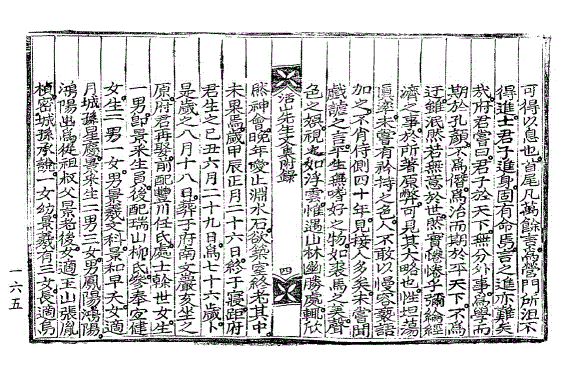 可得以息也首尾凡萬餘言爲營門所沮不
得進士君子進身固有命焉言之進亦難矣
哉府君嘗曰君子於天下無分外事爲學而
期於孔顔不爲僭爲治而期於平天下不爲
迂雖泯然若無意於世然實惓惓乎彌綸經
濟之事於所著原弊可見其大略也性坦蕩
眞率未嘗有矜持之色人不敢以慢容褻語
加之不肖侍側四十年見接人多矣未嘗聞
戲謔之言平生無嗜好之物如裘馬之美聲
色之娛視之如浮雲惟遇山林幽勝處輒欣
活山先生文集附錄
四
然神會晩年愛止淵水石欲築室終老其中
未果焉歲甲辰正月二十六日終于寢距府
君生之己丑六月二十九日爲七十六歲卜
是歲之八月十八日葬于府南文嚴亥坐之
原府君再娶前配豐川任氏處士 世女生
一男卽景采生員後配瑞山柳氏參奉宐健
女生二男一女男景羲文科景和早天女適
月城孫星 景采生二男三女男鳳陽鴻陽
鴻陽出爲從祖叔父景老後女適玉山張胤
楨密城孫承 一女幼景羲有三女長適烏
一六五